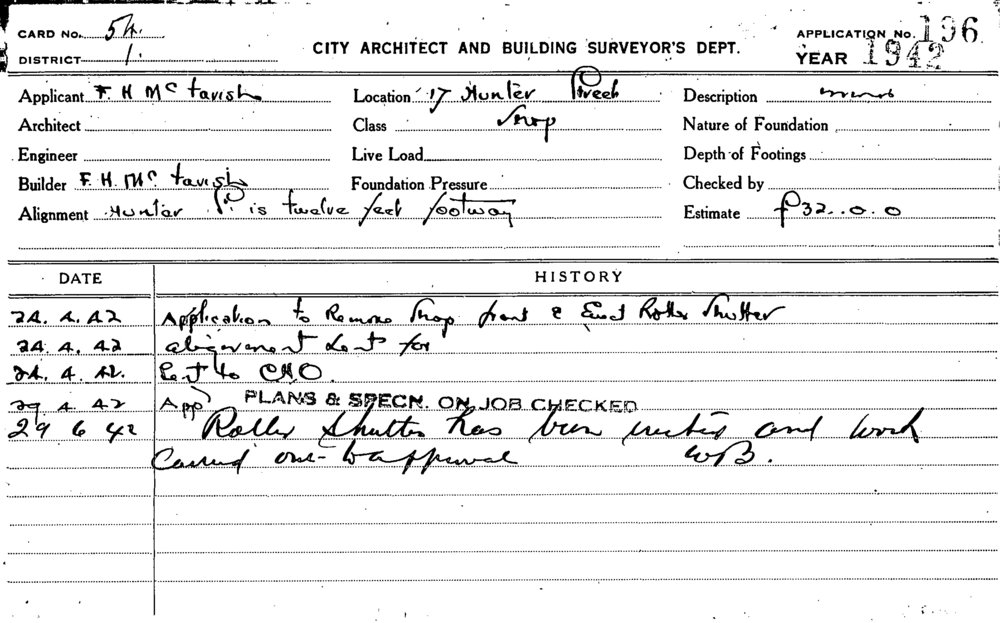 CARD No. 54.
DISTRICT 1.
CITY ARCHITECT AND BUILDING SURVEYOR'S DEPT.
APPLICATION No. 196
YEAR 1942
Applicant F. H Mc Tavish
Location 17 Hunter Street
Description
Architect
Class Shop
Nature of Foundation
Engineer
Live Load
Depth of Footings
Builder F. H. Mc. Tavish
Foundation Pressure
Checked by
Alignment Hunter St. is twelve feet footway
Estimate £32..0.0
DATE HISTORY
24. 4. 42 Application to Remove Shop front & Erect Roller Shutter
24. 4. 42 alignment sent for
24. 4. 42. Sent to
29 4. 42 App PLANS & SPECN. ON JOB CHECKED
29 6 42 Roller Shutter has been erected and work
Carried out to approval WB.